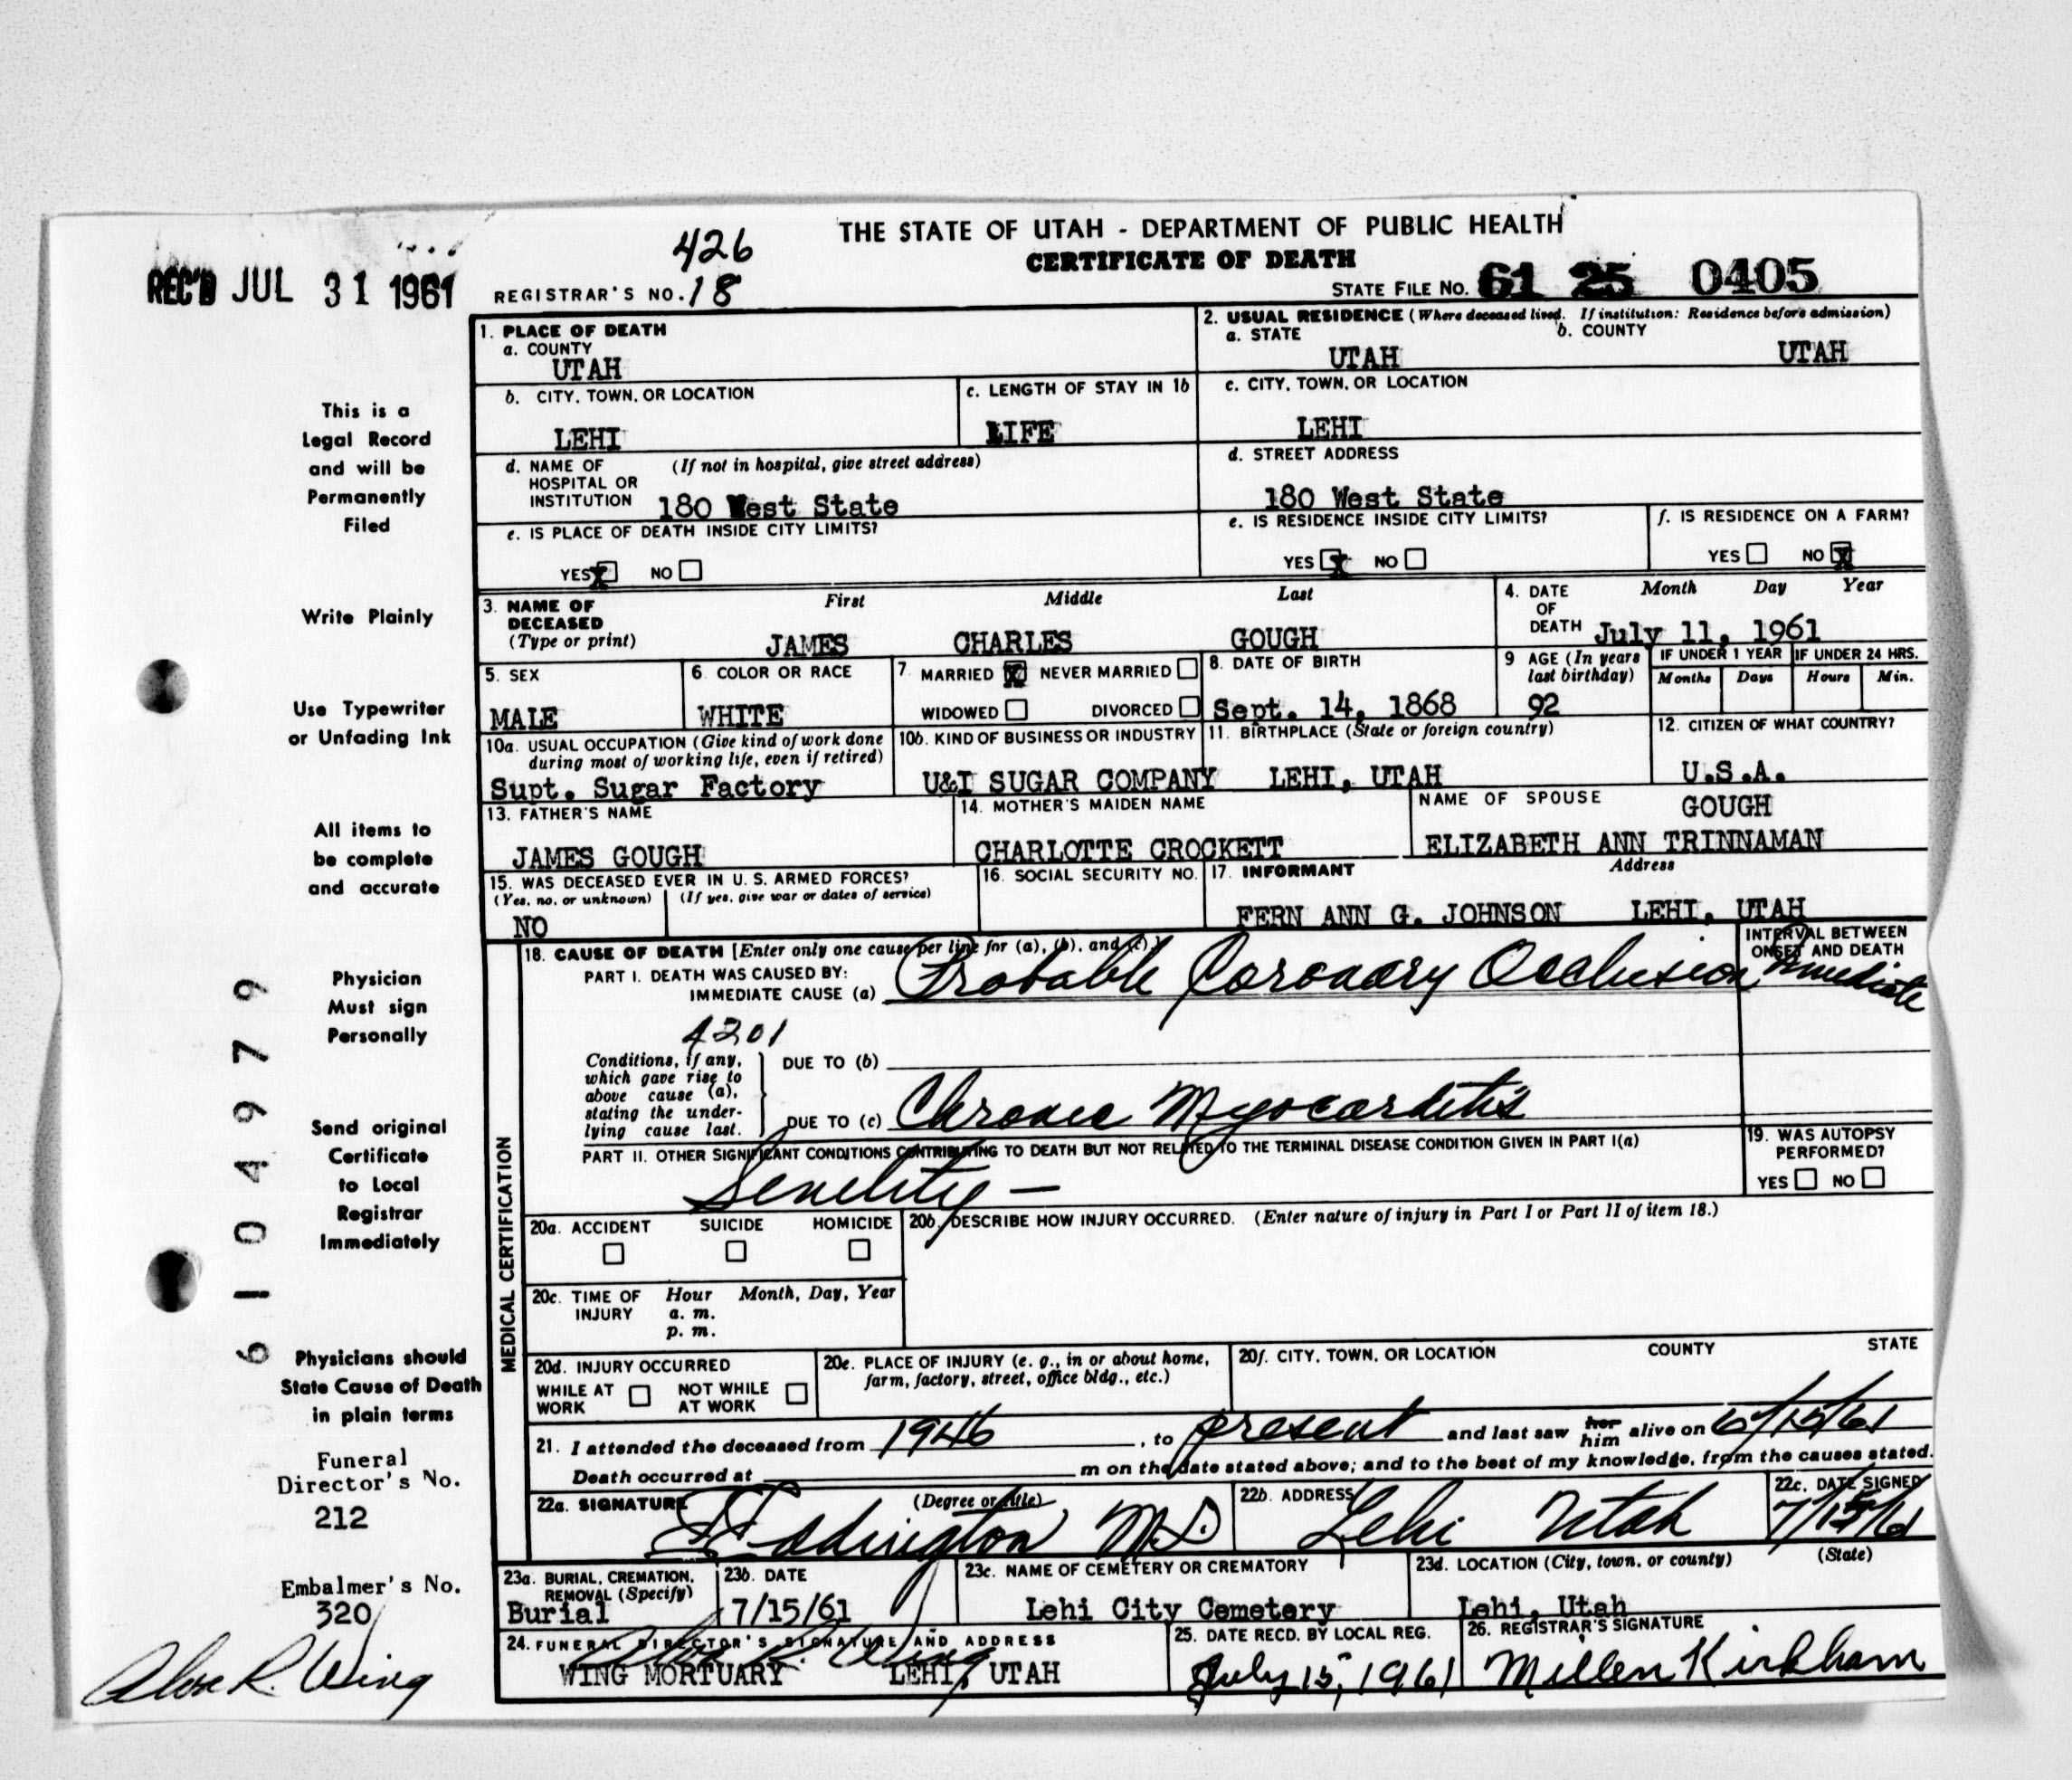 THE STATE OF UTAH - DEPARTMENT OF PUBLIC HEALTH
426
CERTIFICATE OF DEATH
REC'D JUL 31 1961
REGISTRAR'S NO. 18
STATE FILE No. 61 25 0405
1. PLACE OF DEATH
a. COUNTY
UTAH
2. USUAL RESIDENCE (Where deceased lived. If institution: Residence before admission)
a. STATE b. COUNTY
UTAH UTAH
b. CITY, TOWN, OR LOCATION
LEHI
c. LENGTH OF STAY IN 1b
LIFE
c. CITY, TOWN, OR LOCATION
LEHI
d. NAME OF (If not in hospital, give street address)
HOSPITAL OR
INSTITUTION 180 West State
d. STREET ADDRESS
180 West State
e. IS PLACE OF DEATH INSIDE CITY LIMITS?
YES X NO
e. IS RESIDENCE INSIDE CITY LIMITS?
YES X NO
f. IS RESIDENCE ON A FARM?
YES NO X
3. NAME OF
DECEASED
(Type or print)
First Middle Last
JAMES CHARLES GOUGH
4. DATE Month Day Year
OF
DEATH July 11, 1961
5. SEX
MALE
6. COLOR OR RACE
WHITE
7. MARRIED X NEVER MARRIED
WIDOWED DIVORCED
8. DATE OF BIRTH
Sept. 14, 1868
9 AGE (In years
last birthday)
92
IF UNDER 1 YEAR IF UNDER 24 HRS.
Months Days Hours Min.
10a. USUAL OCCUPATION (Give kind of work done
during most of working life, even if retired)
Supt. Sugar Factory
10b. KIND OF BUSINESS OR INDUSTRY
U&I SUGAR COMPANY
11. BIRTHPLACE (State or foreign country)
LEHI, UTAH
12. CITIZEN OF WHAT COUNTRY?
U.S.A.
13. FATHER'S NAME
JAMES GOUGH
14. MOTHER'S MAIDEN NAME
CHARLOTTE CROCKETT
NAME OF SPOUSE GOUGH
ELIZABETH ANN TRINNAMAN
15. WAS DECEASED EVER IN U. S. ARMED FORCES?
(Yes, no, or unknown) (If yes, give war or dates of service)
NO
16. SOCIAL SECURITY NO.
17. INFORMANT Address
FERN ANN G. JOHNSON LEHI, UTAH
MEDICAL CERTIFICATION
18. CAUSE OF DEATH [Enter only one cause per line for (a), (b), and (c).]
PART I. DEATH WAS CAUSED BY:
IMMEDIATE CAUSE (a) Probable Coronary Occlusion
INTERVAL BETWEEN
ONSET AND DEATH
Immediate
4201
Conditions, if any,
which gave rise to
above cause (a),
stating the under-
lying cause last.
DUE TO (b)
DUE TO (c) Chronic Myocarditis
PART II. OTHER SIGNIFICANT CONDITIONS CONTRIBUTING TO DEATH BUT NOT RELATED TO THE TERMINAL DISEASE CONDITION GIVEN IN PART I(a)
Senility —
19. WAS AUTOPSY
PERFORMED?
YES NO
20a. ACCIDENT SUICIDE HOMICIDE
20b. DESCRIBE HOW INJURY OCCURRED. (Enter nature of injury in Part I or Part II of item 18.)
20c. TIME OF Hour Month, Day, Year
INJURY a. m.
p. m.
20d. INJURY OCCURRED
WHILE AT NOT WHILE
WORK AT WORK
20e. PLACE OF INJURY (e. g., in or about home,
farm, factory, street, office bldg., etc.)
20f. CITY, TOWN, OR LOCATION COUNTY STATE
21. I attended the deceased from 1946, to present and last saw her him alive on 6/15/61
Death occurred at m on the date stated above; and to the best of my knowledge, from the causes stated.
22a. SIGNATURE (Degree or title)
Eddington M.D.
22b. ADDRESS
Lehi Utah
22c. DATE SIGNED
7/15/61
23a. BURIAL, CREMATION,
REMOVAL (Specify)
Burial
23b. DATE
7/15/61
23c. NAME OF CEMETERY OR CREMATORY
Lehi City Cemetery
23d. LOCATION (City, town, or county) (State)
Lehi, Utah
24. FUNERAL DIRECTOR'S SIGNATURE AND ADDRESS
Alva R. Wing
WING MORTUARY LEHI, UTAH
25. DATE RECD. BY LOCAL REG.
July 15, 1961
26. REGISTRAR'S SIGNATURE
Millen Kirkham
This is a
Legal Record
and will be
Permanently
Filed
Write Plainly
Use Typewriter
or Unfading Ink
All items to
be complete
and accurate
Physician
Must sign
Personally
Send original
Certificate
to Local
Registrar
Immediately
Physicians should
State Cause of Death
in plain terms
Funeral
Director's No.
212
Embalmer's No.
320
Alva R. Wing
6104979